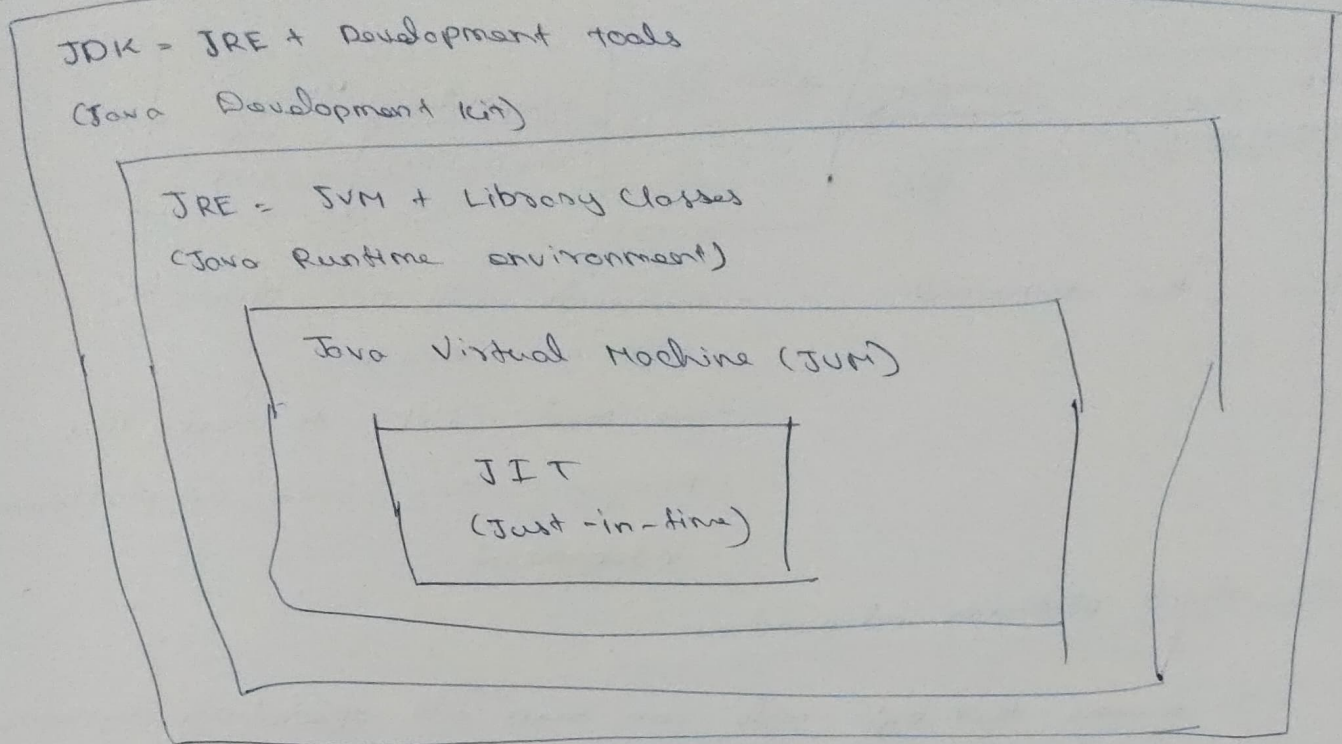 JDK = JRE + Development tools
(Java Development Kit)
JRE = JVM + Library Classes
(Java Runtime environment)
Java Virtual Machine (JVM)
JIT
(Just-in-time)